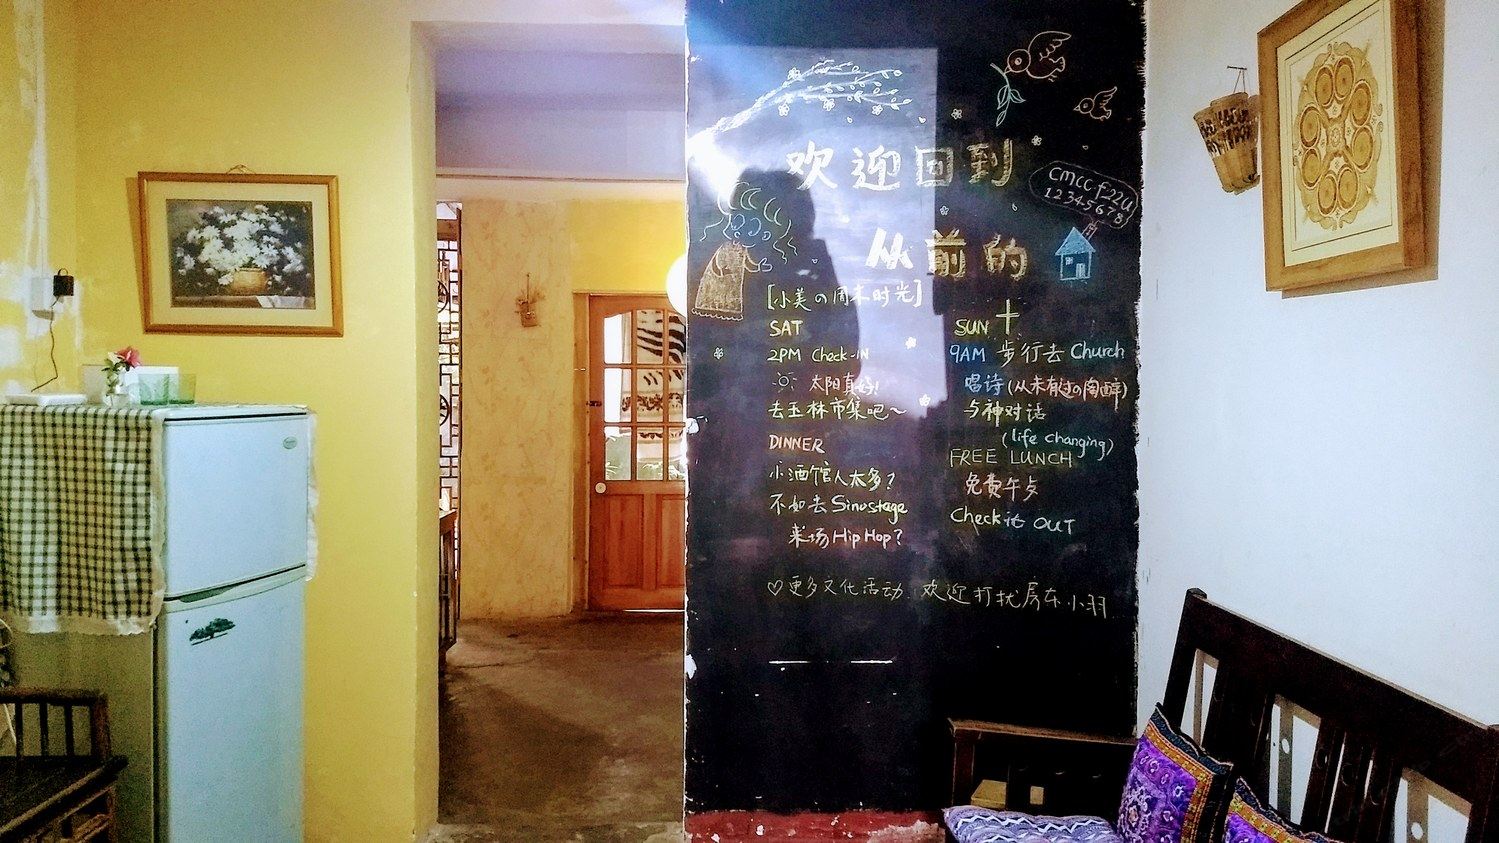 欢迎回到
CMCC-f22u
12345678
从前的🏠
[小美の周末时光]
SAT
2PM Check-IN
太阳真好!
去玉林市集吧~
DINNER
小酒馆人太多?
不如去Sinostage
来场Hip Hop?
SUN
9AM 步行去 Church
唱诗(从未有过の陶醉)
与神对话
(life changing)
FREE LUNCH
免费午餐
Check it OUT
♡更多文化活动 欢迎打扰房东小羽